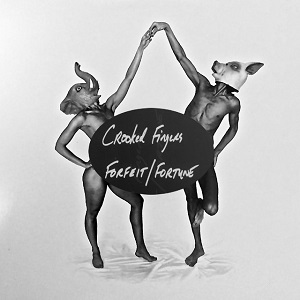 Crooked Fingers
Forfeit/Fortune